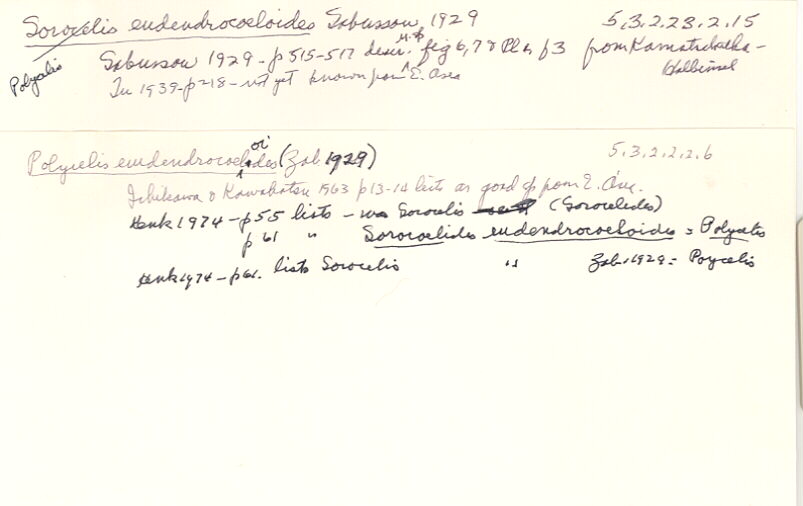 Sorocelis eudendrocoeloides Sabussow, 1929 5.3.2.23.2.15
Polycelis Sabussow 1929 - p 515-517 descr. fig 6, 7 & Pl f3 from Kamatschatka-
Halbinsel
In 1939 - p 218 - not yet known from E. Asia
Polycelis eudendrocoeloides (Zab. 1929) 5.3.2.2.2.6
Ichikawa & Kawakatsu 1963 p 13-14 lists as good sp from E. Asia.
Kenk 1974 - p 55 lists - was Sorocelis (Sorocelides)
p 61 " Sorocoelides eudendrocoeloides = Polycelis
Kenk 1974 - p 61. lists Sorocelis " Zab. 1929 = Poycelis